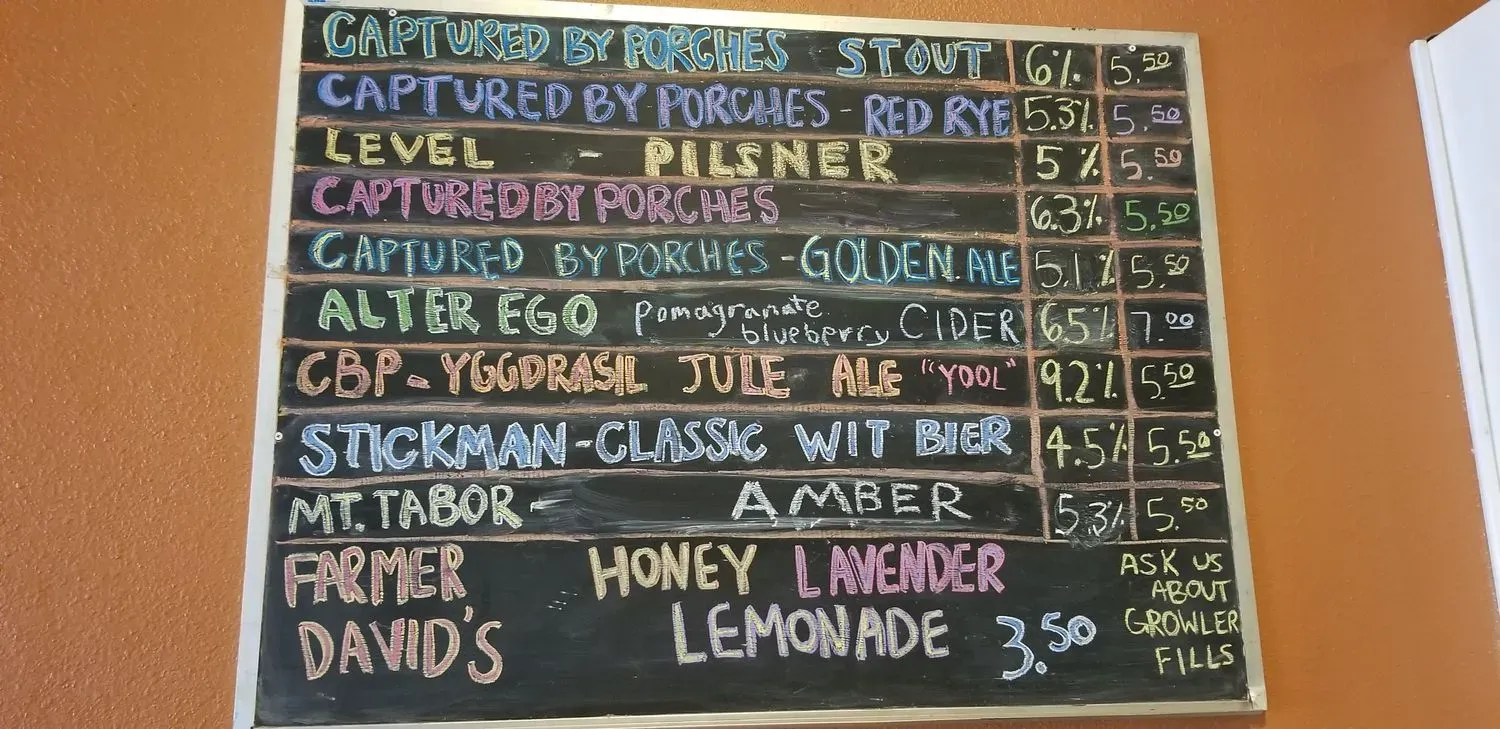 CAPTURED BY PORCHES STOUT 6% 5.50
CAPTURED BY PORCHES - RED RYE 5.3% 5.50
LEVEL - PILSNER 5% 5.50
CAPTURED BY PORCHES 6.3% 5.50
CAPTURED BY PORCHES - GOLDEN ALE 5.1% 5.50
ALTER EGO pomagranate blueberry CIDER 6.5% 7.00
CBP - YGGDRASIL JULE ALE "YOOL" 9.2% 5.50
STICKMAN - CLASSIC WIT BIER 4.5% 5.50
MT. TABOR - AMBER 5.3% 5.50
FARMER DAVID'S
HONEY LAVENDER
LEMONADE 3.50
ASK US
ABOUT
GROWLER
FILLS